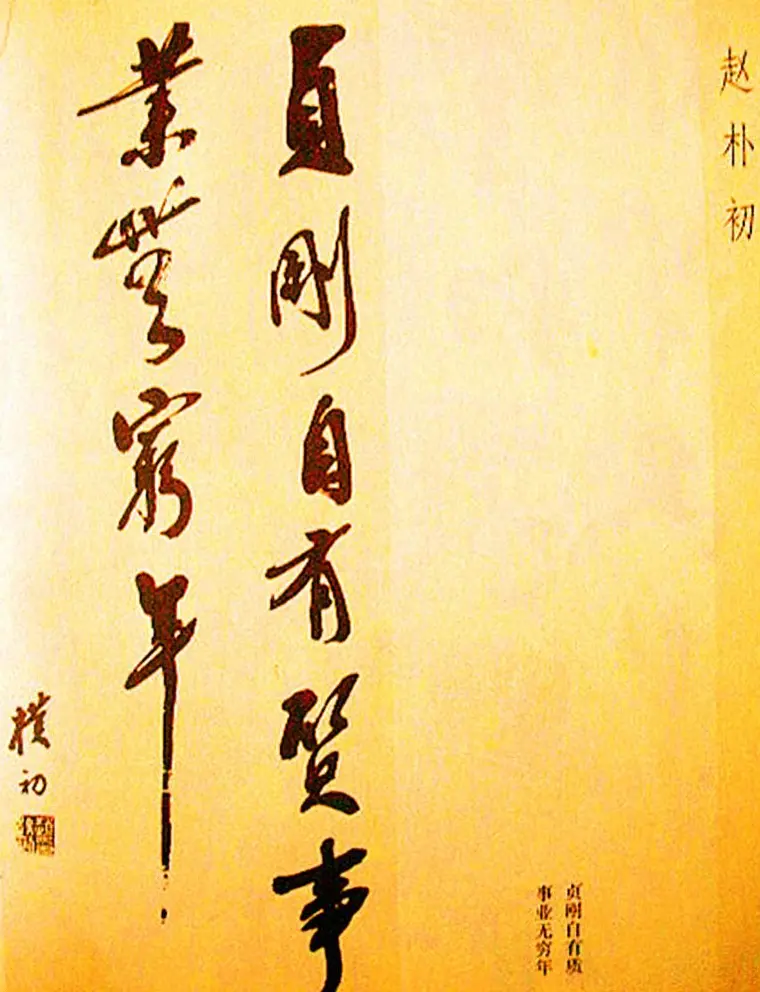 赵朴初
貞剛自有質事
業無窮年
樸初
贞刚自有质
事业无穷年